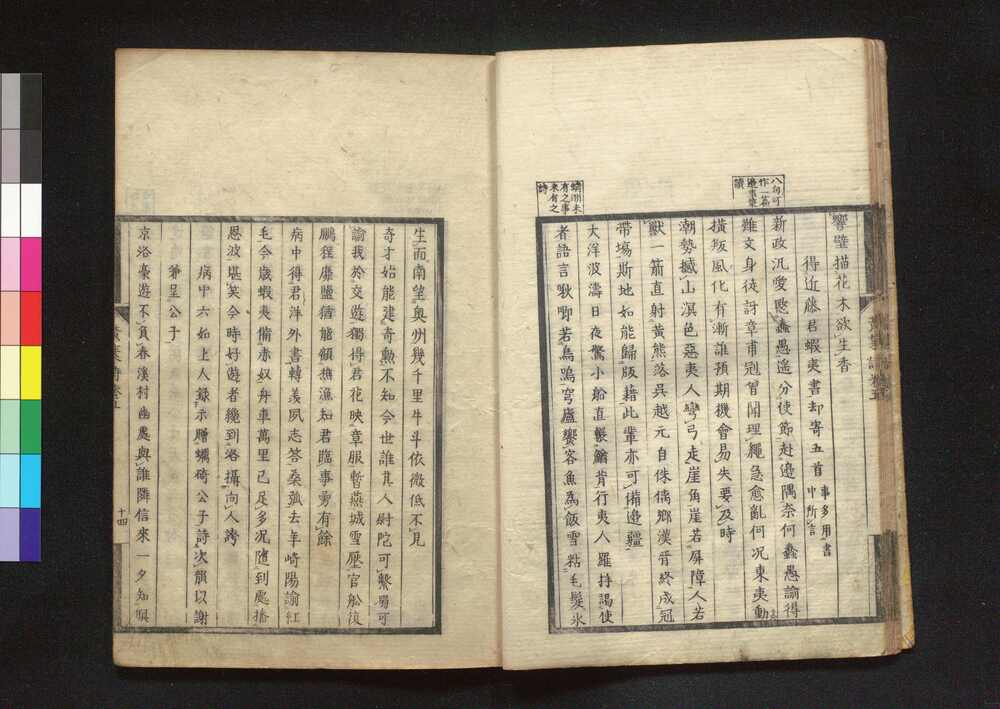 八句可
作一篇
邊事策
讀
響壁描花木欲生香
得近藤君蝦夷書却寄五首 事多用書
中所言
新政汎愛愍蠢愚遥分使節赴邊隅奈何蠢愚諭得
難文身徒訝章甫冠習閗理繩急愈亂何况東夷動
橫叛風化有漸誰預期機會易失要及時
潮勢撼山溟色惡夷人彎弓走崖角崖若屏障人若
獸一箭直射黃熊落吳越元自侏儒鄉漢晉終成冠
帶場斯地如能歸版藉此輩亦可備邊疆
大洋波濤日夜驚小船直
肯行夷人羅持謁使
者語言啾唧若鳥鳴穹廬饗客魚爲飯雪粘毛髮氷
蠐潮未
有之事
來有之
詩
生面南望奥州幾千里牛斗依微低不見
奇才始能建奇勳不知今世誰其人尉陀可繫
可
諭我於交遊獨得君花映章服暫燕城雪壓官船後
鵬程廉鹽猶能頗樵漁知君臨事勇有餘
病中得君洋外書轉羡夙志答桑弧去年崎陽諭紅
毛今歳蝦夷備赤奴舟車萬里已足多况隨到處播
恩波堪笑今時好遊者纔到洛攝向人誇
病中六如上人録示贈蠣碕公子詩次韻以謝
兼呈公子
京洛豪遊不負春溪村幽處與誰隣信來一夕知
黄葉詩卷五
十四